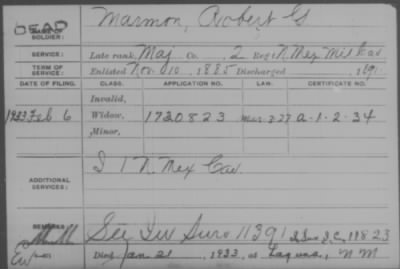 DEAD
NAME OF SOLDIER: Marmon, Robert G
SERVICE: Late rank, Maj Co. 2 Reg't N. Mex Mil Cav
TERM OF SERVICE: Enlisted Nov 10, 1885 Discharged 189
DATE OF FILING. CLASS. APPLICATION NO. LAW. CERTIFICATE NO.
Invalid,
1933 Feb 6 Widow, 1730823 Mar 3-27 A-1-2-34
Minor,
ADDITIONAL SERVICES: I 1 N. Mex Cav.
REMARKS: See Ind Surv 11391 I. C. 11823
Died Jan 21, 1933, at Laguna, N M